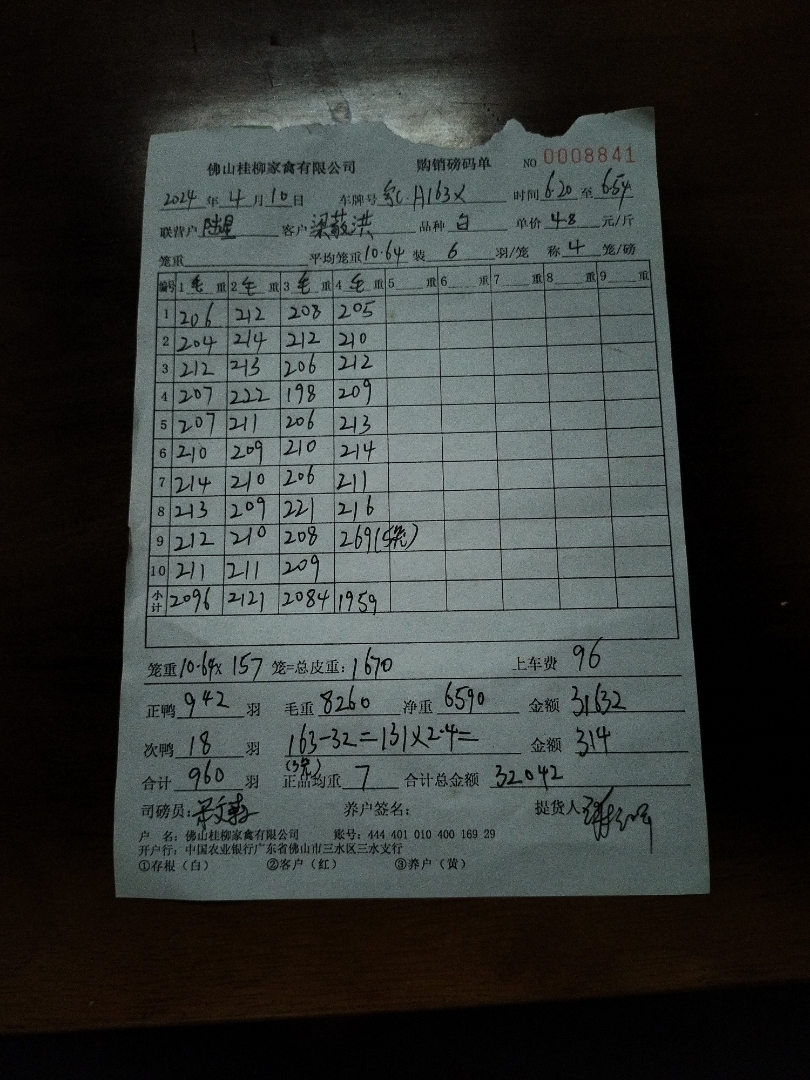 佛山桂柳家禽有限公司 购销磅码单 NO 0008841
2024 年 4 月 10 日 车牌号 A163X 时间 6.20 至 6.54
联营户 陆星 客户 梁 洪 品种 白 单价 4.8 元/斤
笼重 平均笼重 10.64 装 6 羽/笼 称 4 笼/磅
编号 1 毛 重 2 毛 重 3 毛 重 4 毛 重 5 重 6 重 7 重 8 重 9 重
1 206 212 208 205
2 204 214 212 210
3 212 213 206 212
4 207 222 198 209
5 207 211 206 213
6 210 209 210 214
7 214 210 206 211
8 213 209 221 216
9 212 210 208 269(5笼)
10 211 211 209
小计 2096 2121 2084 1959
笼重 10.64x 157 笼=总皮重: 1670 上车费 96
正鸭 942 羽 毛重 8260 净重 6590 金额 31632
次鸭 18 羽 163-32=131X2.4= 金额 314
(3笼)
合计 960 羽 正品均重 7 合计总金额 32042
司磅员: 养户签名: 提货人:
户 名: 佛山桂柳家禽有限公司 账号: 444 401 010 400 169 29
开户行: 中国农业银行广东省佛山市三水区三水支行
①存根(白) ②客户(红) ③养户(黄)